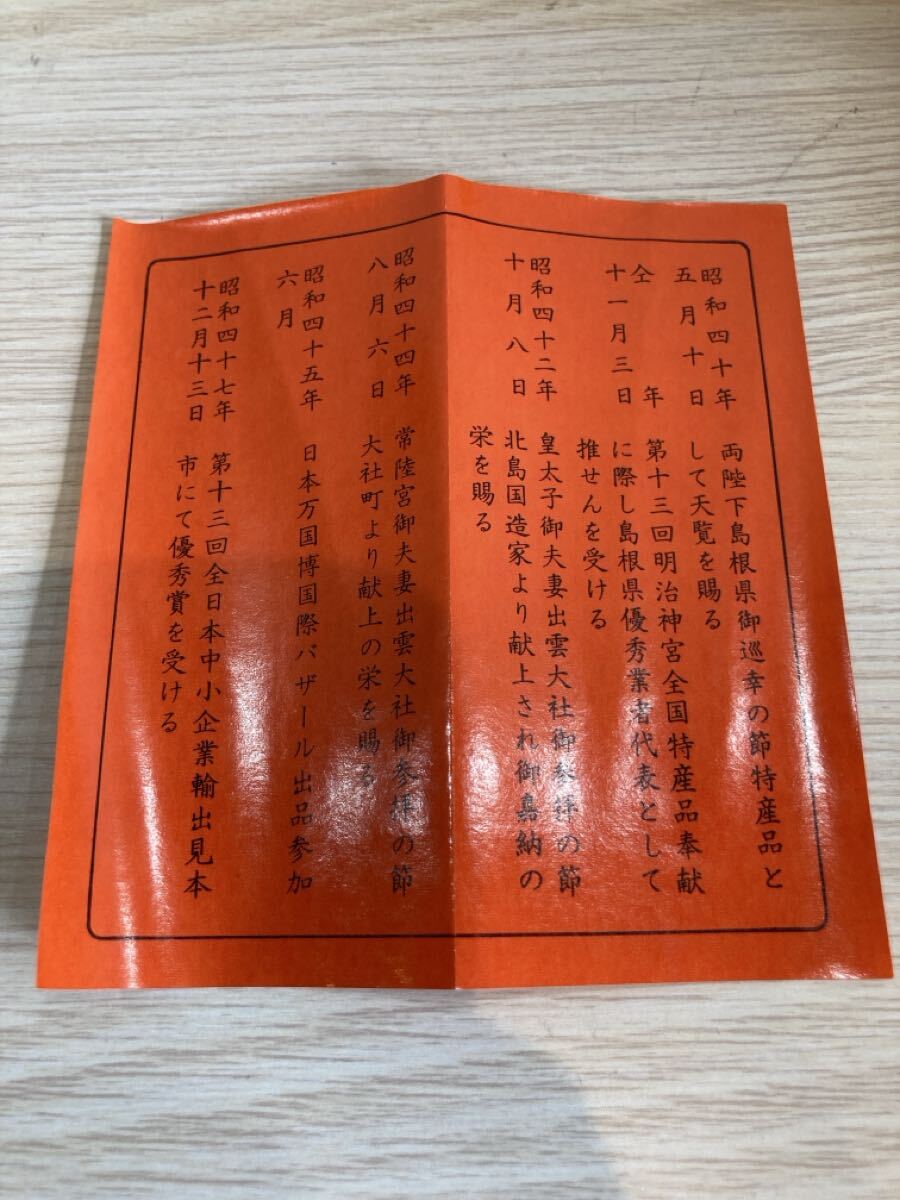 昭和四十年
五月十日
両陛下島根県御巡幸の節特産品と
して天覧を賜る
仝年
十一月三日
第十三回明治神宮全国特産品奉献
に際し島根県優秀業者代表として
推せんを受ける
昭和四十二年
十月八日
皇太子御夫妻出雲大社御参拝の節
北島国造家より献上され御嘉納の
栄を賜る
昭和四十四年
八月六日
常陸宮御夫妻出雲大社御参拝の節
大社町より献上の栄を賜る
昭和四十五年
六月
日本万国博国際バザール出品参加
昭和四十七年
十二月十三日
第十三回全日本中小企業輸出見本
市にて優秀賞を受ける